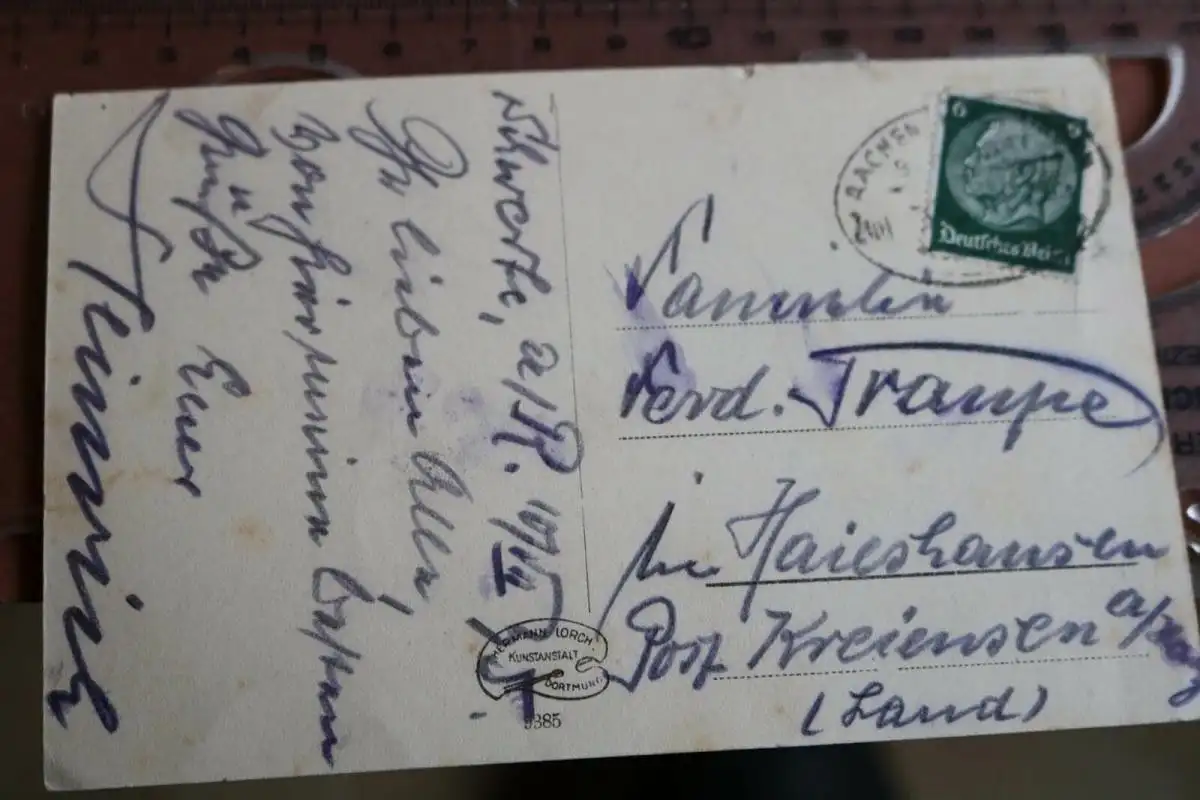 Schwerte, a/R. 10/VII
Ihr lieben Alle,
Von hier seinen besten
Grüße
Euer
Heinrich
AACHEN
6 6
Deutsches Reich
Familie
Ferd. Traupe
in Haieshausen
Post Kreiensen a/Harz
(Land)
HERMANN LORCH.
KUNSTANSTALT
DORTMUND
9385